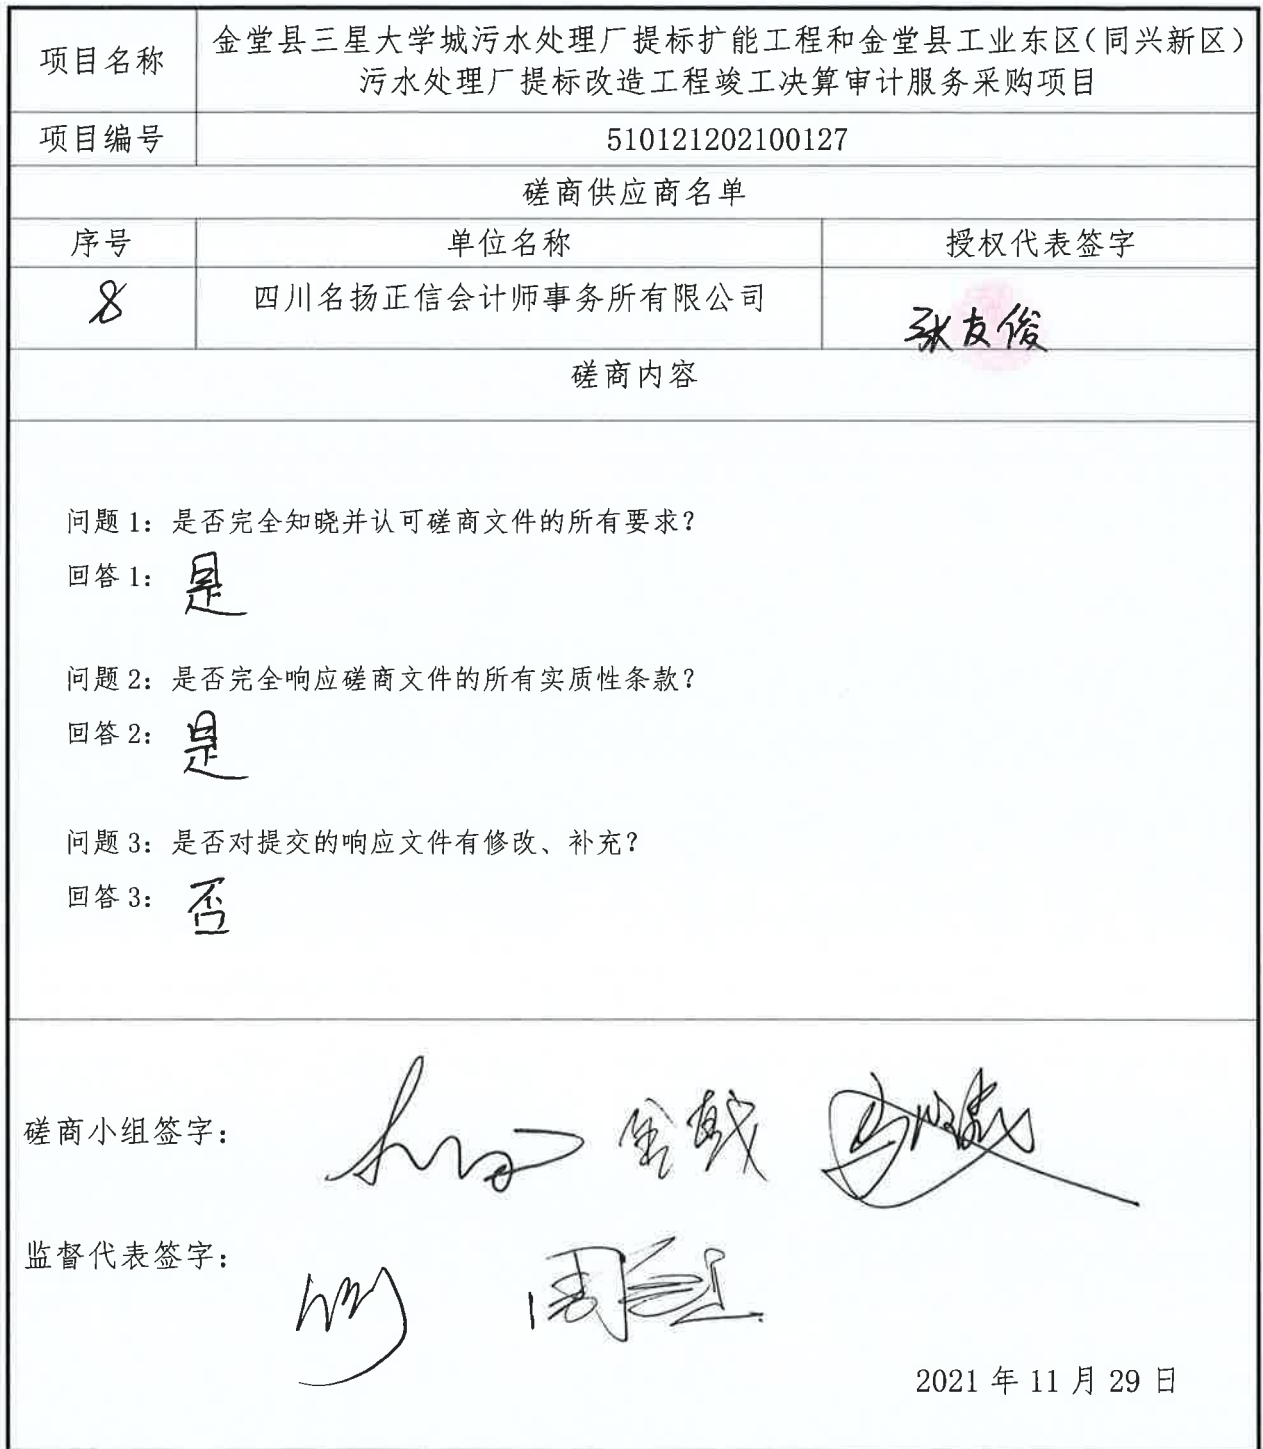 项目名称
金堂县三星大学城污水处理厂提标扩能工程和金堂县工业东区(同兴新区)
污水处理厂提标改造工程竣工决算审计服务采购项目
项目编号
510121202100127
磋商供应商名单
序号
单位名称
授权代表签字
8
四川名扬正信会计师事务所有限公司
张友俊
磋商内容
问题1:是否完全知晓并认可磋商文件的所有要求?
回答1:是
问题2:是否完全响应磋商文件的所有实质性条款?
回答2:是
问题3:是否对提交的响应文件有修改、补充?
回答3:否
磋商小组签字:
监督代表签字:
2021年11月29日